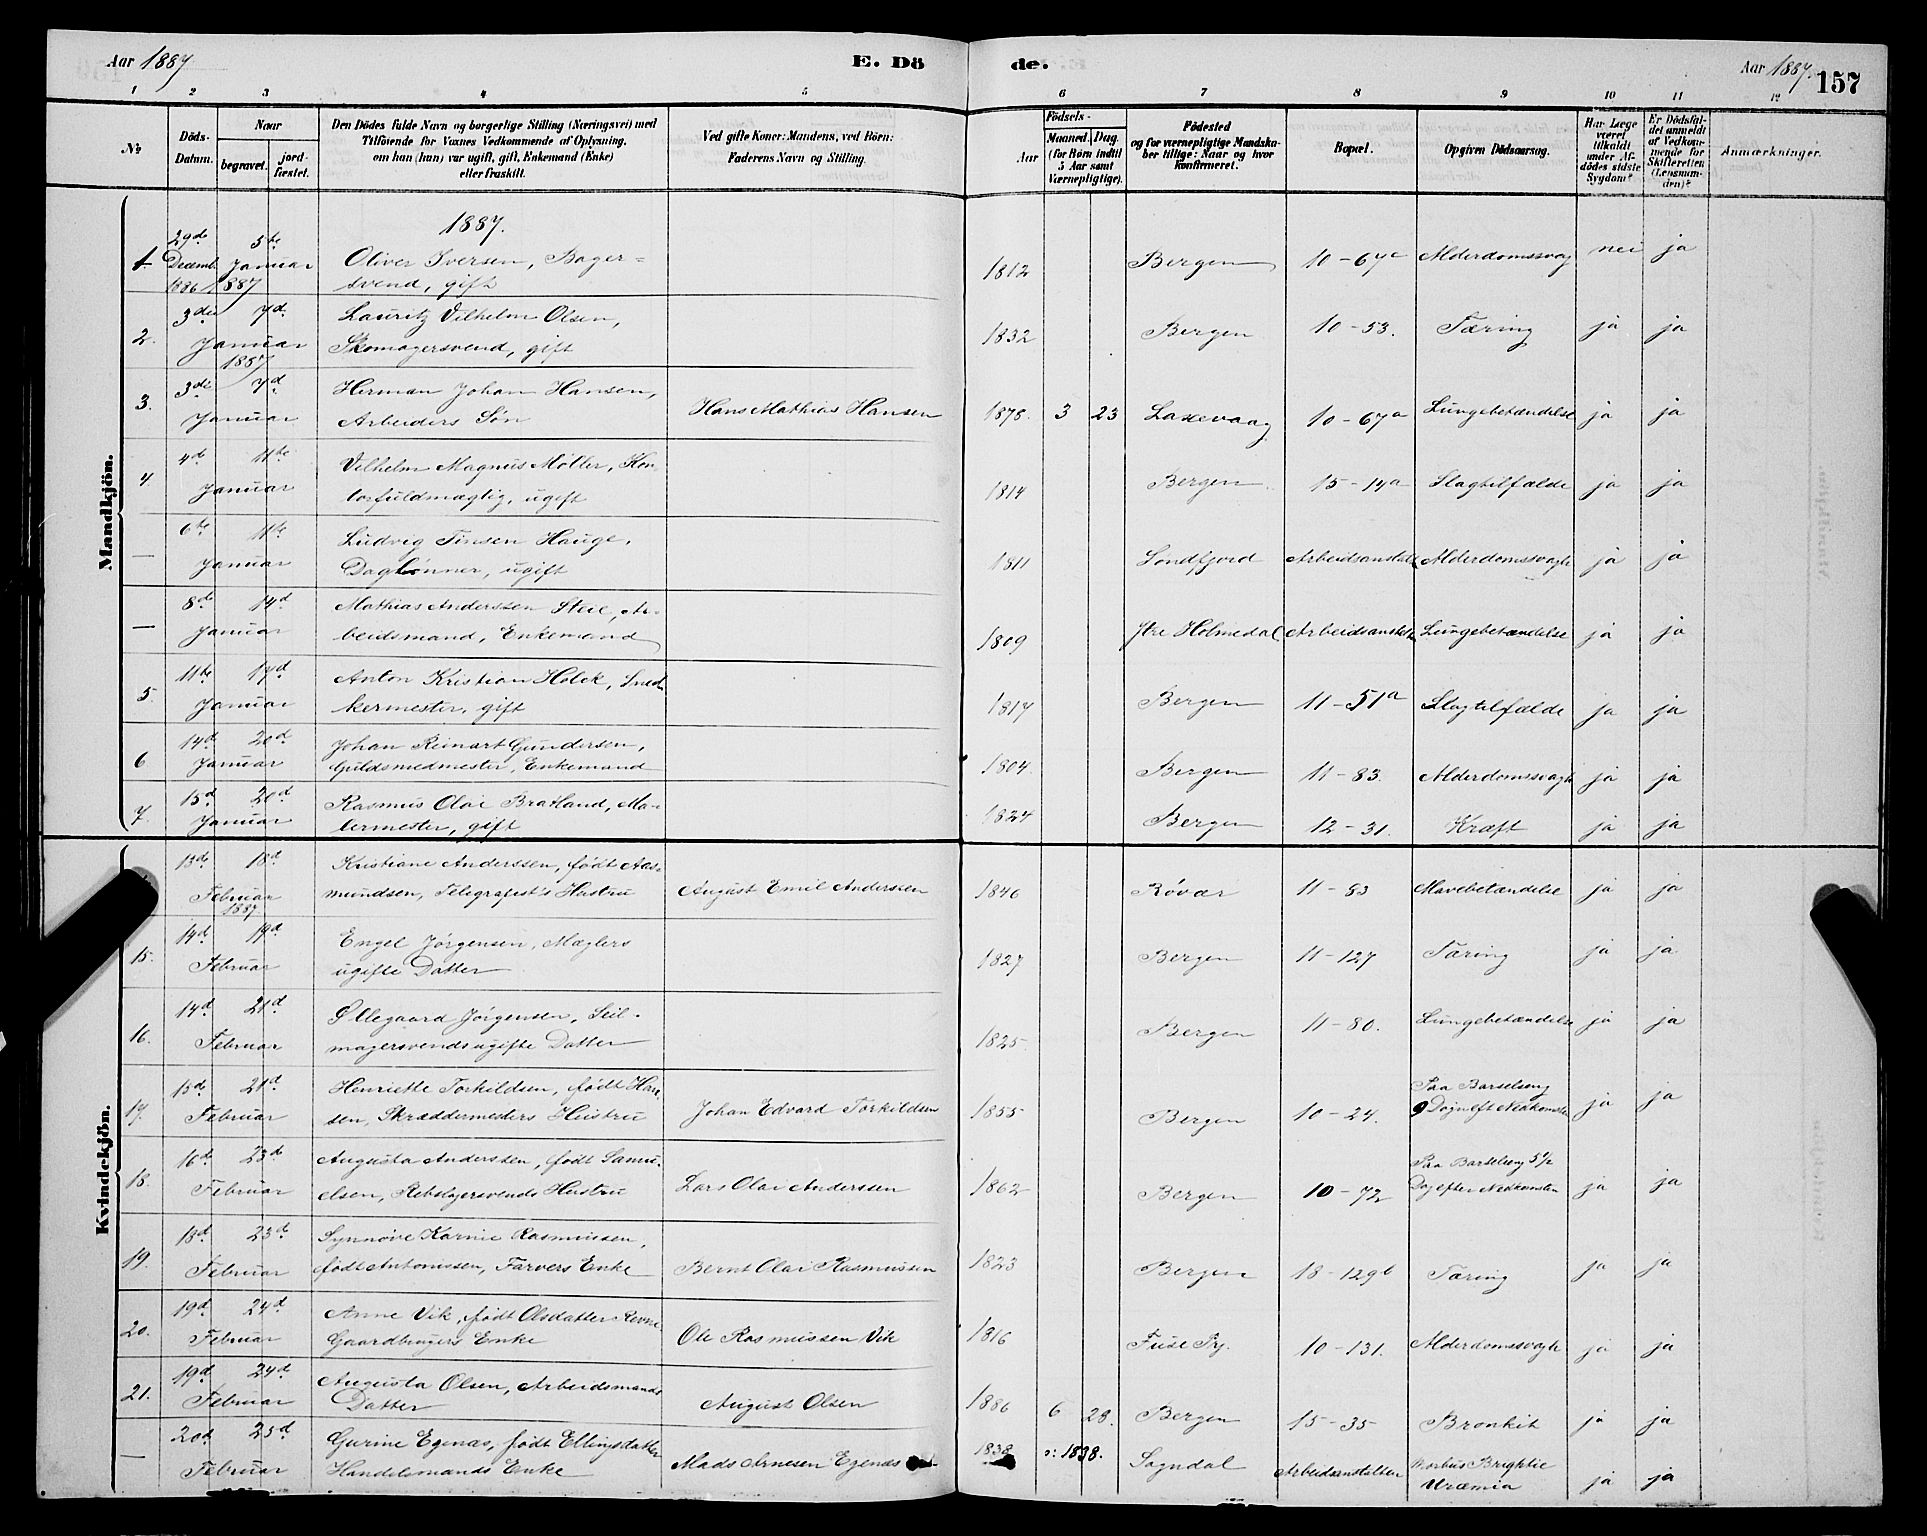 Aar 1887
E. Dö
de.
Aar 1887.
157
1 2 3 4 5 6 7 8 9 10 11 12
No
Döds-Datum.
Naar
begravet.
jordfæstet.
Den Dödes fulde Navn og borgerlige Stilling (Næringsvei) med
Tilföiende for Voxnes Vedkommende af Oplysning,
om han (hun) var ugift, gift, Enkemand (Enke)
eller fraskilt.
Ved gifte Koner: Mandens, ved Börn:
Faderens Navn og Stilling.
Födsels-
Aar
Maaned. Dag.
(for Börn indtil
5 Aar samt
Værnepligtige).
Födested
og for værnepligtige Mandskaber
tillige: Naar og hvor
konfirmeret.
Bopæl.
Opgiven Dödsaarsag.
Har Læge
været
tilkaldt
under Afdödes
sidste
Sygdom?
Er Dödsfaldet
anmeldt
af Vedkommende
for
Skifteretten
(Lensmanden)?
Anmærkninger.
Mandkjön.
1887.
1. 29de Decemb. 1886 5te Januar 1887 Oliver Iversen, Bager-
svend, gift 1812 Bergen 10-67c Alderdomssvag nei ja
2. 3die 7d. Januar 1887 Lauritz Vilhelm Olsen,
Skomagersvend, gift 1832 Bergen 10-53. Tæring ja ja
3. 3die 7d Januar Herman Johan Hansen,
Arbeiders Søn Hans Mathias Hansen 1878. 3 23 Laxevaag 10-67a Lungebetændelse ja ja
4. 4d 11te Januar Vilhelm Magnus Møller, Kon-
torfuldmægtig, ugift 1814 Bergen. 15-14a Slagtilfælde ja ja
— 6te 11te Januar Ludvig Tinsen Hauge,
Daglønner, ugift 1811 Søndfjord Arbeidsanstalt Alderdomssvagh ja ja
— 8de 14d Januar Mathias Anderssen Steie, Ar-
beidsmand, Enkemand 1809 Ytre Holmedal Arbeidsanstalt Lungebetændelse ja ja
5. 11te 17d Januar Anton Kristian Holck, Sned-
kermester, gift 1817 Bergen 11-51a Slagtilfælde ja ja
6 14d 20d Januar Johan Reinart Gundersen,
Guldsmedmester, Enkemand 1804. Bergen 11-83. Alderdomssvagh ja ja
7. 15d 20d Januar Rasmus Olai Bratland, Ma-
lermester, gift 1824 Bergen 12-31. Kræft ja ja
Kvindekjön.
13de 18d Februar 1887 Kristiane Anderssen, født Aas-
mundsen, Telegrafist's Hustru August Emil Anderssen 1846 Røvær 11-83 Mavebetændelse ja ja
15. 14d 19d Februar Engel Jørgensen, Mæglers
ugifte Datter 1827 Bergen 11-127 Tæring ja ja
16. 14d 21d Februar Øllegaard Jørgensen, Seil-
magersvends ugifte Datter 1825 Bergen 11-80. Lungebetændelse ja ja
17. 15d 21d Februar Henriette Torkildsen, født Han-
sen, Skræddermesters Hustru Johan Edvard Torkildsen 1855 Bergen 10-24. Paa Barselseng
9 Døgn eft Nedkomsten ja ja
18. 16d 23d Februar Augusta Anderssen, født Samu-
elsen, Rebslagersvends Hustru Lars Olai Anderssen 1862 Bergen 10-72 Paa Barselseng 5 1/2
Dag efter Nedkomsten ja ja
19. 18d 23d Februar Synnøve Karine Rasmussen,
født Antonissen, Farvers Enke Bernt Olai Rasmussen 1823 Bergen 18-129b Tæring ja ja
20. 19d 24d Februar Anne Vik, født Olsdatter Revne
Gaardbrugers Enke Ole Rasmussen Vik 1816 Fuse Prj. 10-131. Alderdomssvagh ja ja
21. 19d 24d Februar Augusta Olsen, Arbeidsmands
Datter August Olsen 1886 6 28. Bergen 15-35 Bronkit ja ja
— 20d 25d Februar Gurine Egenæs, født Ellingsdatter
Handelsmands Enke Mads Arnesen Egenæs 1838 ɔ: 1838. Sogndal Arbeidsanstalten Morbus Brightie
Uræmia ja ja